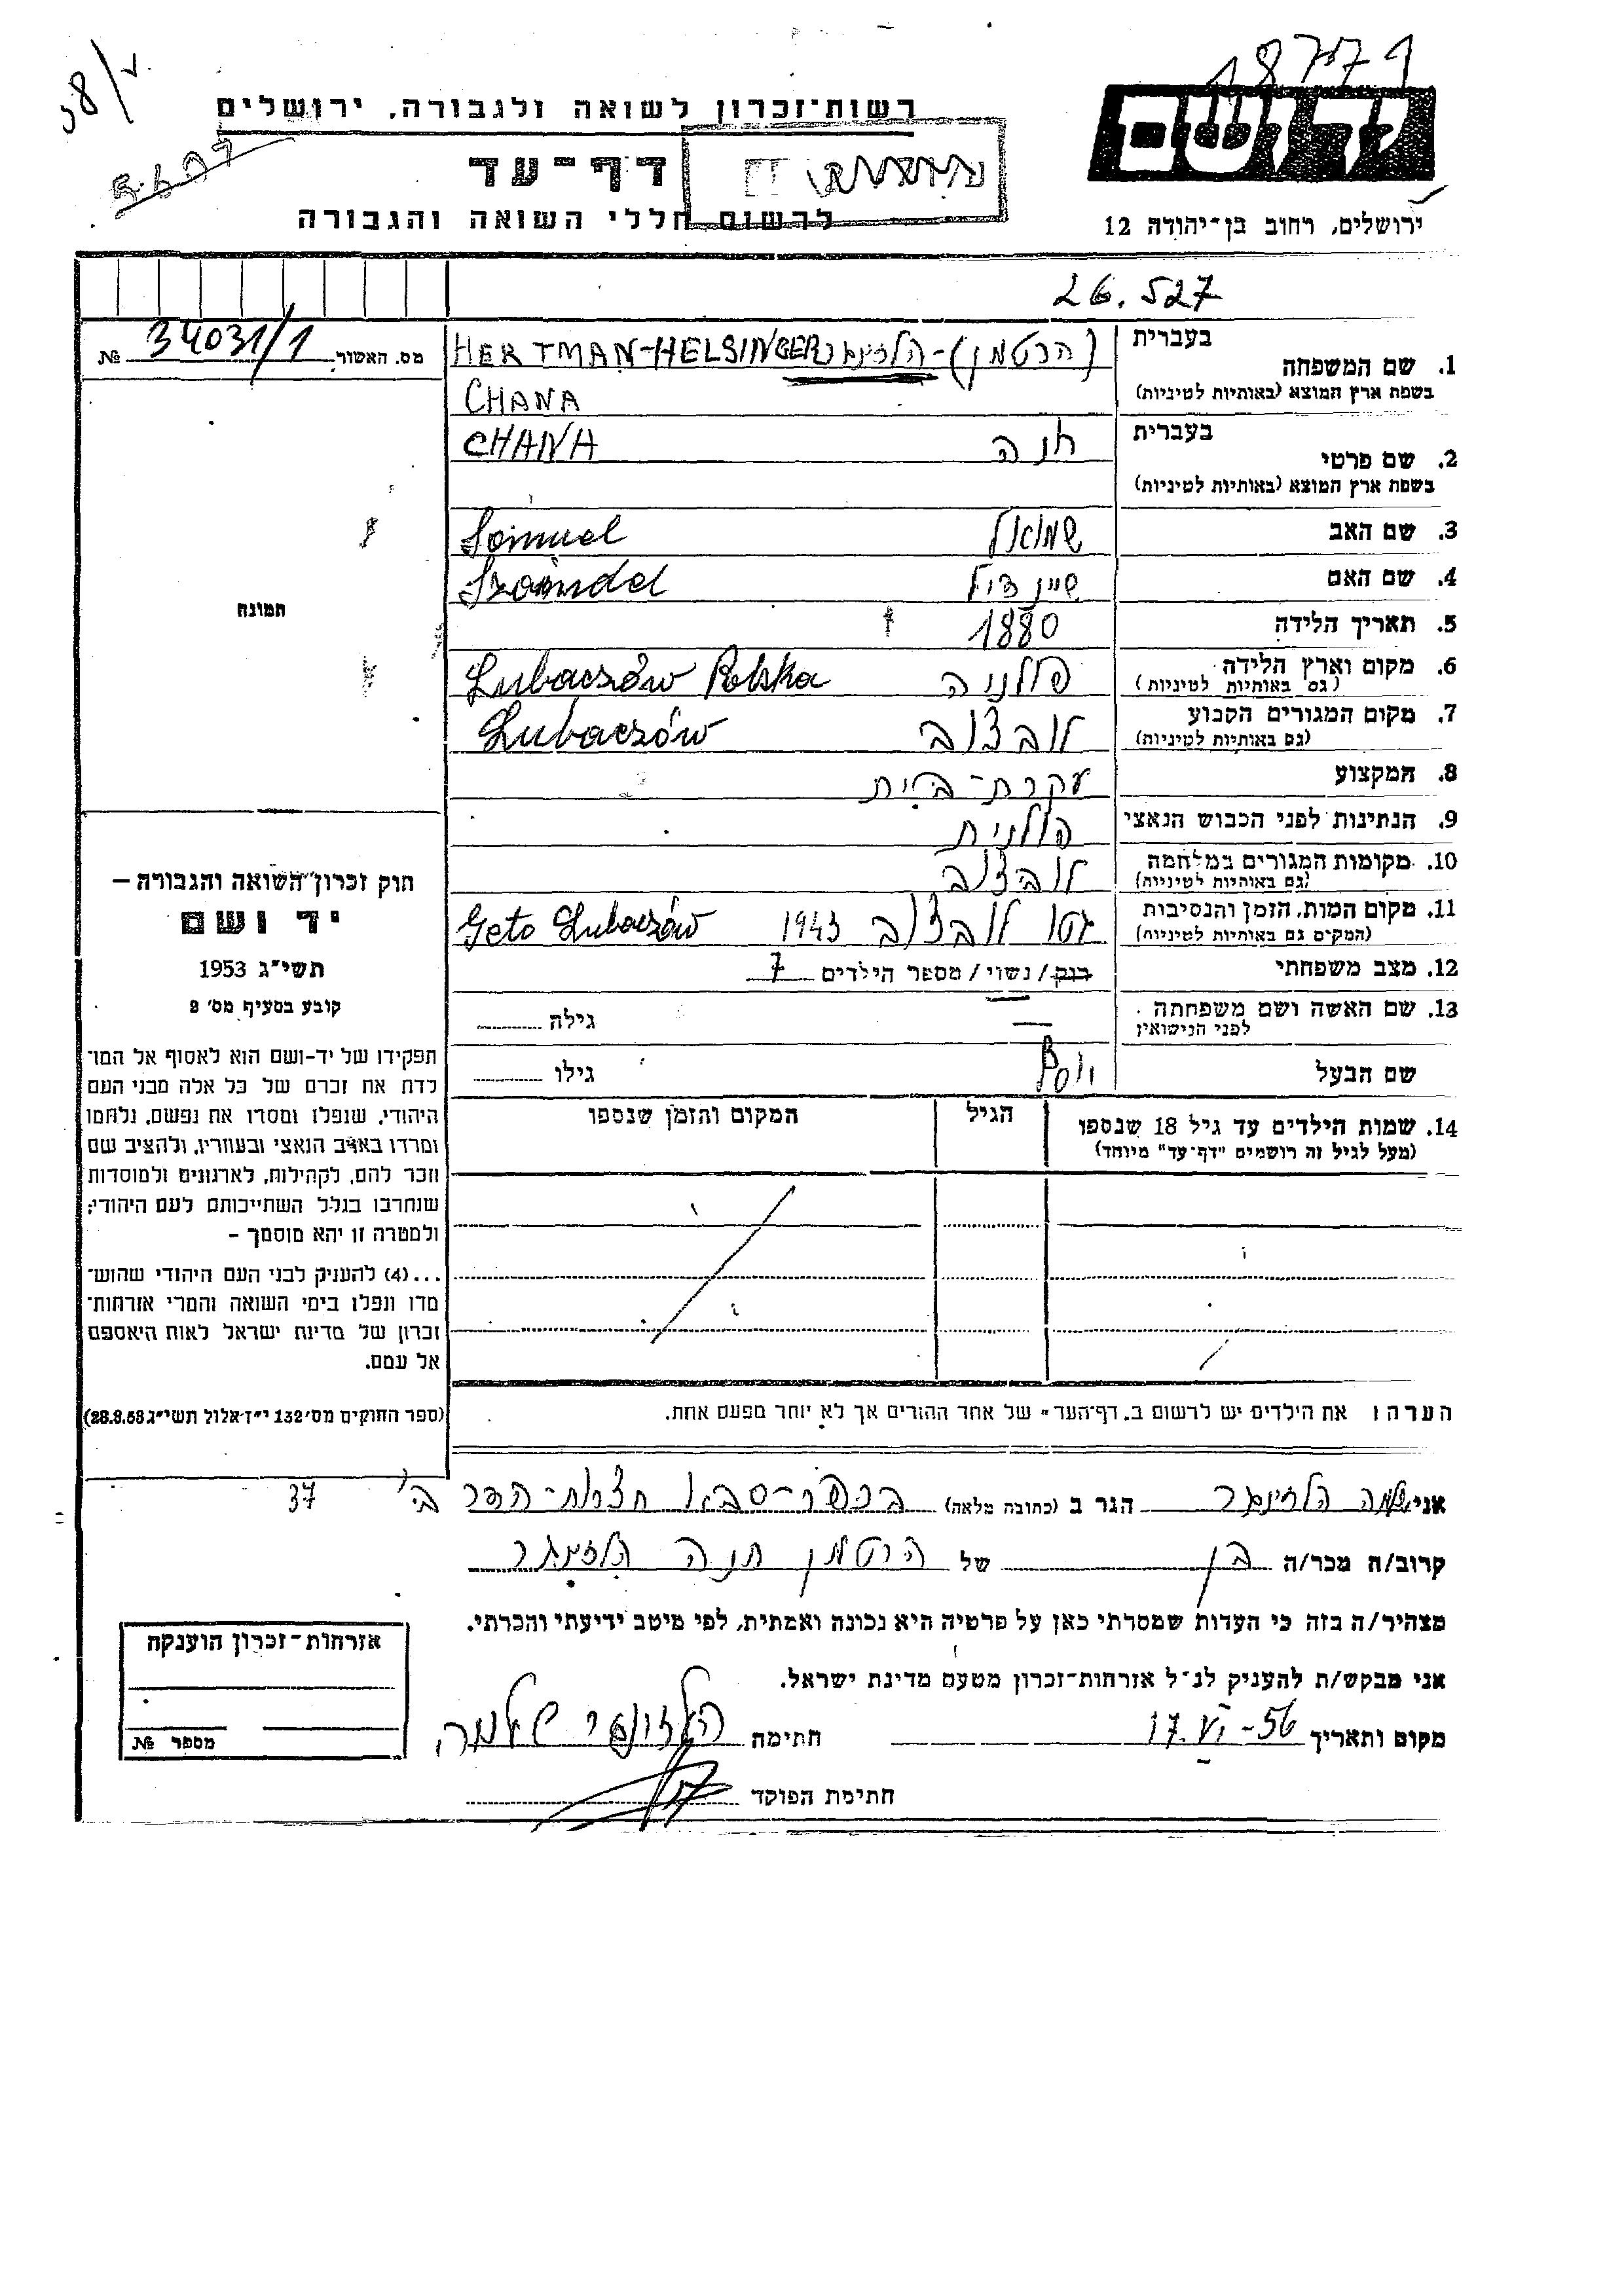 48779
58/v.
רשות־זכרון לשואה ולגבורה, ירושלים
דף־עד
לרשום חללי השואה והגבורה
יד ושם
ירושלים, רחוב בן־יהודה 12
26.527
מס. האשור 34031/1 №
1. שם המשפחה בעברית (הרטמן)-הלזינגר HERTMAN-HELSINGER
בשפת ארץ המוצא (באותיות לטיניות) CHANA
2. שם פרטי בעברית חנה CHANA
בשפת ארץ המוצא (באותיות לטיניות)
3. שם האב שמואל Samuel
4. שם האם שיינדיל Szaindel
5. תאריך הלידה 1880
6. מקום וארץ הלידה (גם באותיות לטיניות) פולניה Lubaczów Polska
7. מקום המגורים הקבוע (גם באותיות לטיניות) לובצוב Lubaczów
8. המקצוע עקרת-בית
9. הנתינות לפני הכבוש הנאצי פולנית
10. מקומות המגורים במלחמה (גם באותיות לטיניות) לובצוב
11. מקום המות, הזמן והנסיבות (המקום גם באותיות לטיניות) גטו לובצוב 1943 Geto Lubaczów
12. מצב משפחתי רוק/נשוי/ מספר הילדים 7
13. שם האשה ושם משפחתה לפני הנישואין — גילה
שם הבעל יוסף גילו
14. שמות הילדים עד גיל 18 שנספו הגיל המקום והזמן שנספו
(מעל לגיל זה רושמים "דף־עד" מיוחד)
תמונה
חוק זכרון השואה והגבורה –
יד ושם
תשי"ג 1953
קובע בסעיף מס' 2
תפקידו של יד-ושם הוא לאסוף אל המו־
לדת את זכרם של כל אלה מבני העם
היהודי, שנפלו ומסרו את נפשם, נלחמו
ומרדו באויב הנאצי ובעוזריו, ולהציב שם
וזכר להם, לקהילות, לארגונים ולמוסדות
שנחרבו בגלל השתייכותם לעם היהודי;
ולמטרה זו יהא מוסמך –
...(4) להעניק לבני העם היהודי שהוש־
מדו ונפלו בימי השואה והמרי אזרחות־
זכרון של מדינת ישראל לאות היאספם
אל עמם.
(ספר החוקים מס' 132 י"ז אלול תשי"ג 28.8.53)
הערה: את הילדים יש לרשום ב"דף־העד" של אחד ההורים אך לא יותר מפעם אחת.
אני שלמה הלזינגר הגר ב (כתובה מלאה) בכפר-סבא חצרות-הדר ב' 37
קרוב/ה מכר/ה בן של הרטמן חנה הלזינגר
מצהיר/ה בזה כי העדות שמסרתי כאן על פרטיה היא נכונה ואמתית, לפי מיטב ידיעתי והכרתי.
אני מבקש/ת להעניק לנ"ל אזרחות־זכרון מטעם מדינת ישראל.
מקום ותאריך 17.VI-56 חתימה הלזינגר שלמה
חתימת הפוקד
אזרחות־זכרון הוענקה
מספר №